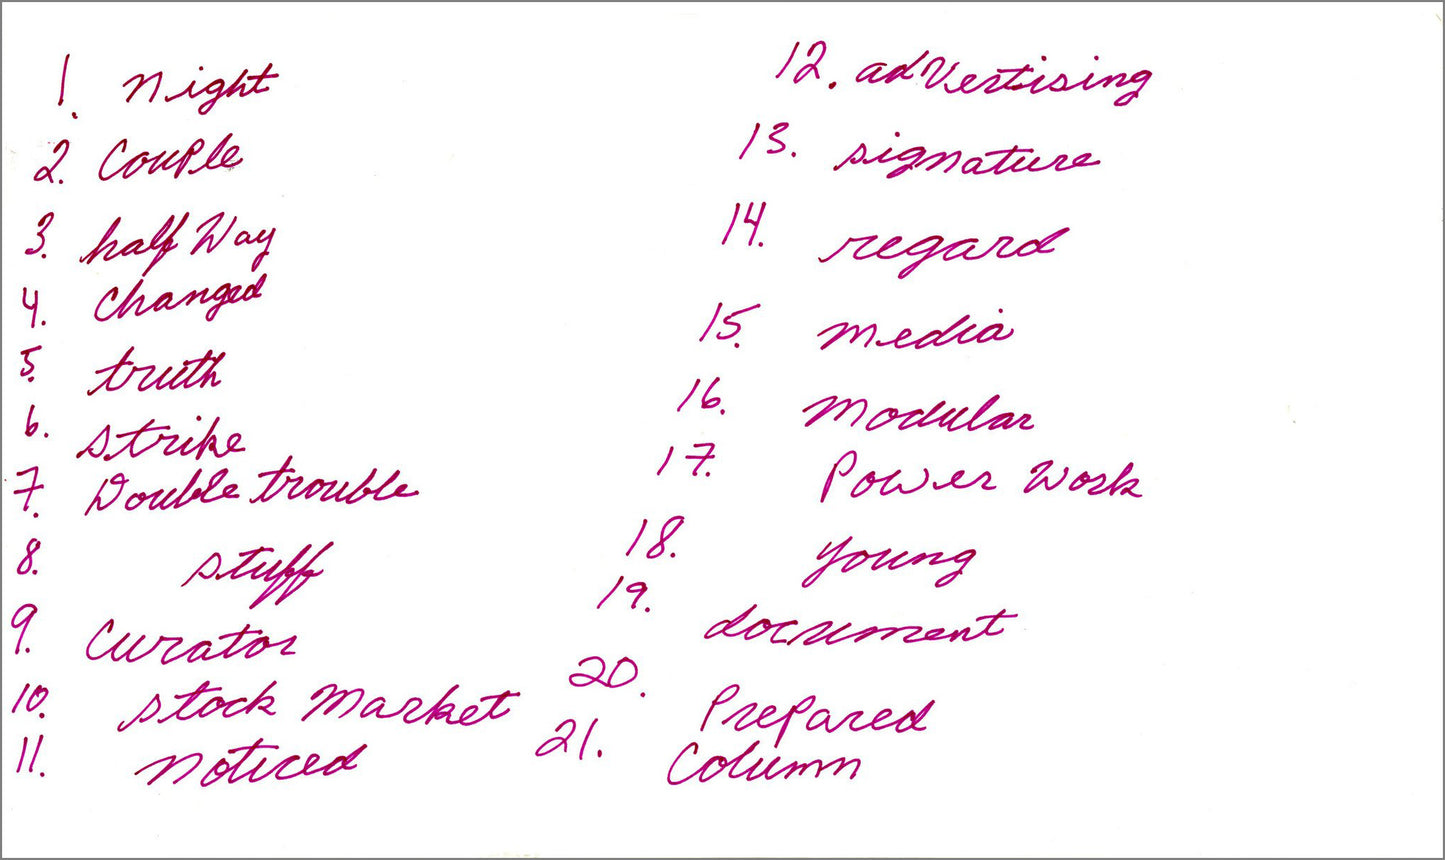 1. Night
2. Couple
3. half Way
4. Changed
5. truth
6. strike
7. Double trouble
8. stuff
9. Curator
10. stock Market
11. noticed
12. adVertising
13. signature
14. regard
15. media
16. Modular
17. Power Work
18. young
19. document
20. Prepared
21. Column